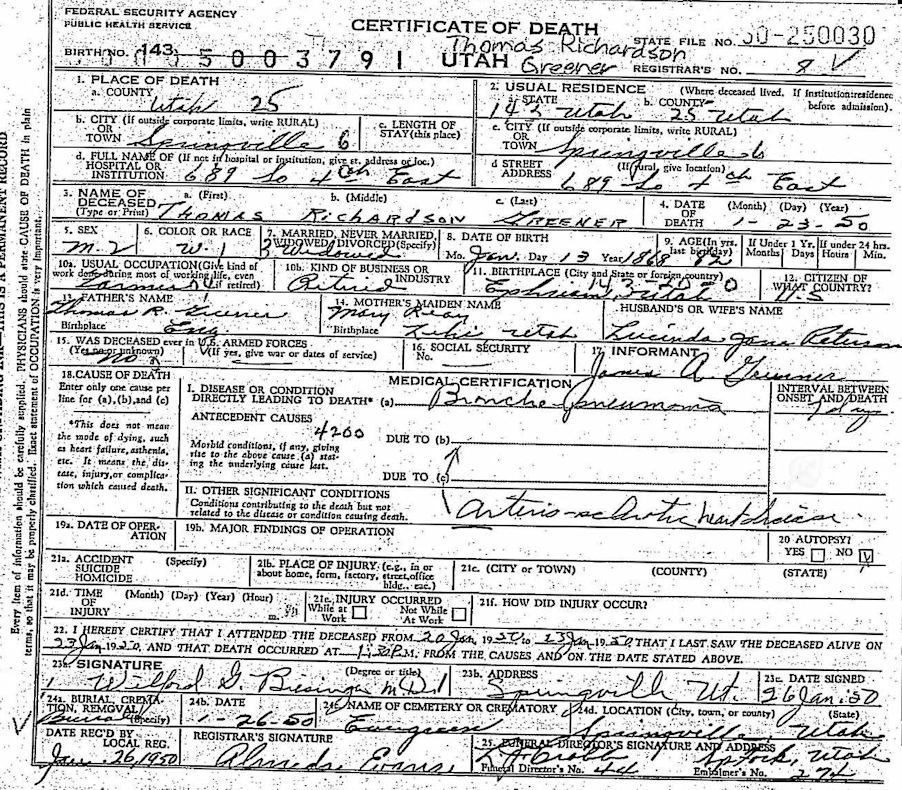 FEDERAL SECURITY AGENCY
PUBLIC HEALTH SERVICE
CERTIFICATE OF DEATH
Thomas Richardson Greener
STATE FILE NO. 50-250030
BIRTH NO. 143 5003791 UTAH
REGISTRAR'S NO. 8
1. PLACE OF DEATH
a. COUNTY Utah 25
2. USUAL RESIDENCE (Where deceased lived. If institution: residence before admission).
a. STATE 143 Utah b. COUNTY 25 Utah
b. CITY (If outside corporate limits, write RURAL) OR TOWN Springville 6
c. LENGTH OF STAY (this place)
c. CITY (If outside corporate limits, write RURAL) OR TOWN Springville 6
d. FULL NAME OF (If not in hospital or institution, give st. address or loc.) HOSPITAL OR INSTITUTION 689 So 4th East
d STREET ADDRESS (If rural, give location) 689 So 4th East
3. NAME OF DECEASED (Type or Print) a. (First) THOMAS b. (Middle) RICHARDSON c. (Last) GREENER
4. DATE OF DEATH (Month) (Day) (Year) 1-23-50
5. SEX M-2
6. COLOR OR RACE W-1
7. MARRIED, NEVER MARRIED, WIDOWED DIVORCED (Specify) Widowed
8. DATE OF BIRTH Mo. Jan. Day 13 Year 1868
9. AGE (In yrs. last birthday) 82
If Under 1 Yr. Months Days
If under 24 hrs. Hours Min.
10a. USUAL OCCUPATION (Give kind of work done during most of working life, even if retired) Farmer
10b. KIND OF BUSINESS OR INDUSTRY Retired
11. BIRTHPLACE (City and State or foreign country) Ephriam, Utah
12. CITIZEN OF WHAT COUNTRY? U.S
13. FATHER'S NAME Thomas R. Greener
Birthplace Eng
14. MOTHER'S MAIDEN NAME Mary
Birthplace Utah
HUSBAND'S OR WIFE'S NAME
Lucinda Jane Peterson
15. WAS DECEASED ever in U.S. ARMED FORCES (Yes no or unknown) (If yes, give war or dates of service) No
16. SOCIAL SECURITY No.
17. INFORMANT
James A Greener
18. CAUSE OF DEATH
Enter only one cause per line for (a), (b), and (c)
*This does not mean the mode of dying, such as heart failure, asthenia, etc. It means the disease, injury, or complication which caused death.
MEDICAL CERTIFICATION
INTERVAL BETWEEN ONSET AND DEATH
I. DISEASE OR CONDITION DIRECTLY LEADING TO DEATH* (a) Broncho pneumonia
ANTECEDENT CAUSES
4200
Morbid conditions, if any, giving rise to the above cause (a) stating the underlying cause last.
DUE TO (b)
DUE TO (c)
II. OTHER SIGNIFICANT CONDITIONS
Conditions contributing to the death but not related to the disease or condition causing death.
Arterio-sclerotic heart disease
19a. DATE OF OPERATION
19b. MAJOR FINDINGS OF OPERATION
20 AUTOPSY?
YES NO
21a. ACCIDENT SUICIDE HOMICIDE (Specify)
21b. PLACE OF INJURY (e.g., in or about home, form, factory, street, office bldg., eac.)
21c. (CITY OR TOWN) (COUNTY) (STATE)
21d. TIME OF INJURY (Month) (Day) (Year) (Hour) m.
21e. INJURY OCCURRED While at Work Not While At Work
21f. HOW DID INJURY OCCUR?
22. I HEREBY CERTIFY THAT I ATTENDED THE DECEASED FROM 20 Jan, 1950 to 23 Jan 1950 THAT I LAST SAW THE DECEASED ALIVE ON
23 Jan 1950, AND THAT DEATH OCCURRED AT 1:50 P.M. FROM THE CAUSES AND ON THE DATE STATED ABOVE.
23a. SIGNATURE (Degree or title)
Wilford G. M.D.
23b. ADDRESS
Springville Ut.
23c. DATE SIGNED
26 Jan. 50
24a. BURIAL, CREMATION, REMOVAL (Specify) Burial
24b. DATE
1-26-50
24c. NAME OF CEMETERY OR CREMATORY
Evergreen
24d. LOCATION (City, town, or county) (State)
Springville, Utah
DATE REC'D BY LOCAL REG.
Jan. 26, 1950
REGISTRAR'S SIGNATURE
Almeda Evans
25. FUNERAL DIRECTOR'S SIGNATURE AND ADDRESS
Sp Fork, Utah
Funeral Director's No. 44
Embalmer's No. 274
THIS IS A PERMANENT RECORD
Every item of information should be carefully supplied. PHYSICIANS should state CAUSE OF DEATH in plain
terms, so that it may be properly classified. Exact statement of OCCUPATION is very important.